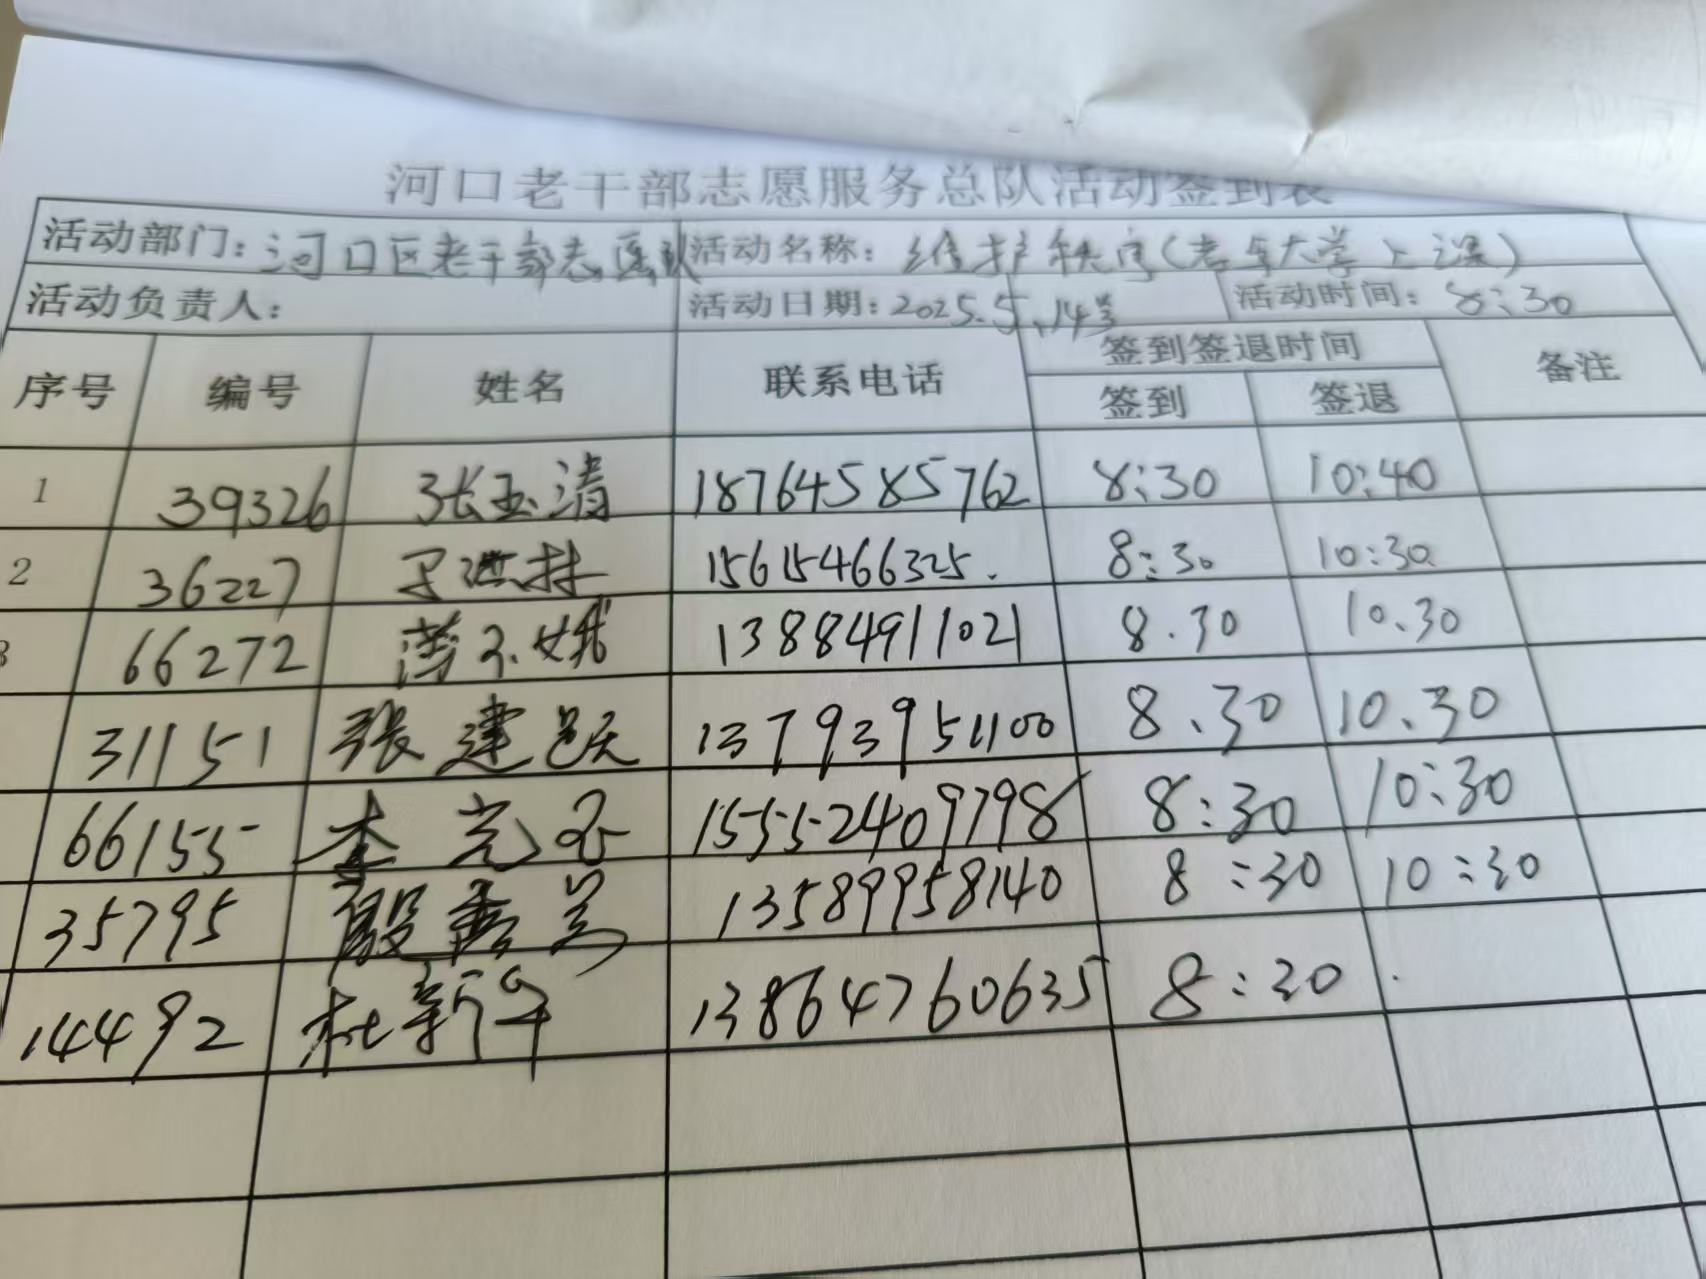 河口老干部志愿服务总队活动签到表
活动部门：河口区老干部志愿队 活动名称：维护秩序（老年大学上课）
活动负责人： 活动日期：2025.5.14号 活动时间：8:30
序号 编号 姓名 联系电话 签到签退时间 备注
签到 签退
1 39326 张玉清 18764585762 8:30 10:40
2 36227 15615466325. 8:30 10:30
3 66272 13884911021 8.30 10.30
31151 張建跃 13793951100 8.30 10.30
66155 李光 15552409798 8:30 10:30
35795 殷 13589958140 8:30 10:30
14492 杜新军 13864760635 8:30